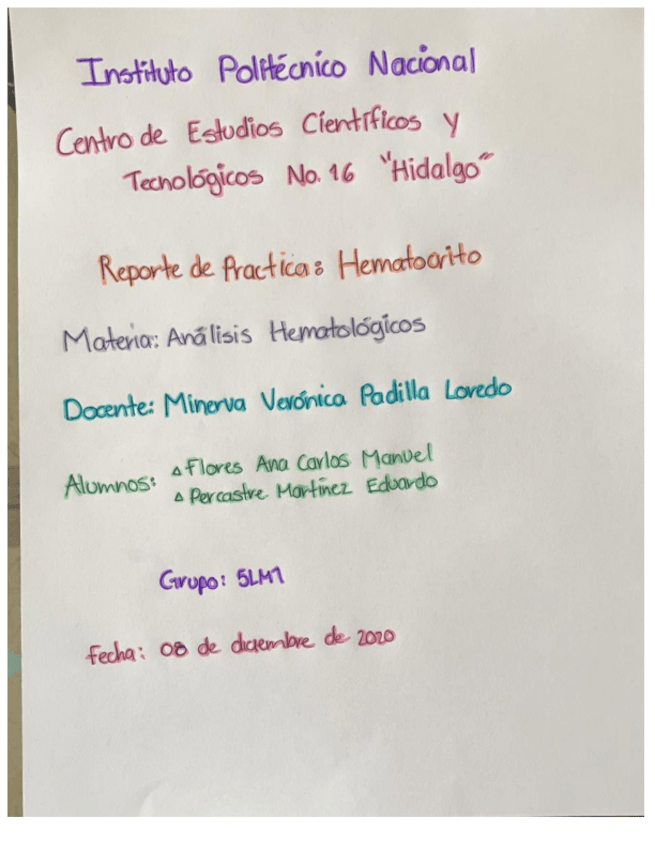 Instituto Politécnico Nacional
Centro de Estudios Científicos y
Tecnológicos No. 16 "Hidalgo"
Reporte de Practica: Hematocrito
Materia: Análisis Hematológicos
Docente: Minerva Verónica Padilla Loredo
Alumnos: △ Flores Ana Carlos Manuel
△ Percastre Martínez Eduardo
Grupo: 5LM1
Fecha: 08 de diciembre de 2020